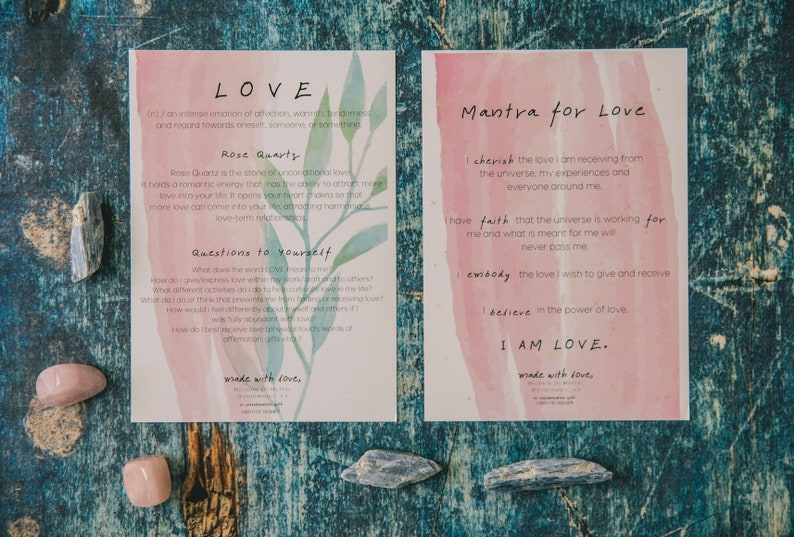 LOVE
(n) / an intense emotion of affection, warmth, tenderness
and regard towards oneself, someone, or something.
Rose Quartz
Rose Quartz is the stone of unconditional love.
It holds a romantic energy that has the ability to attract more
love into your life. It opens your heart chakra so that
more love can come into your life, attracting harmonious,
love-term relationships.
Questions to Yourself
What does the word LOVE mean to me?
How do i give/express love within my work/craft and to others?
What different activities do i do to help cultivate love in my life?
What do i do or think that prevents me from giving or receiving love?
How would i feel differently about myself and others if i
was fully abundant with love?
How do i best receive love (physical touch, words of
affirmation, gifts etc.) ?
made with love,
Michele Di
in collaboration with
VIBRATE HIGHER
Mantra for Love
I cherish the love i am receiving from
the universe, my experiences and
everyone around me.
I have faith that the universe is working for
me and what is meant for me will
never pass me.
I embody the love i wish to give and receive
I believe in the power of love.
I AM LOVE.
made with love,
Michele Di
in collaboration with
VIBRATE HIGHER